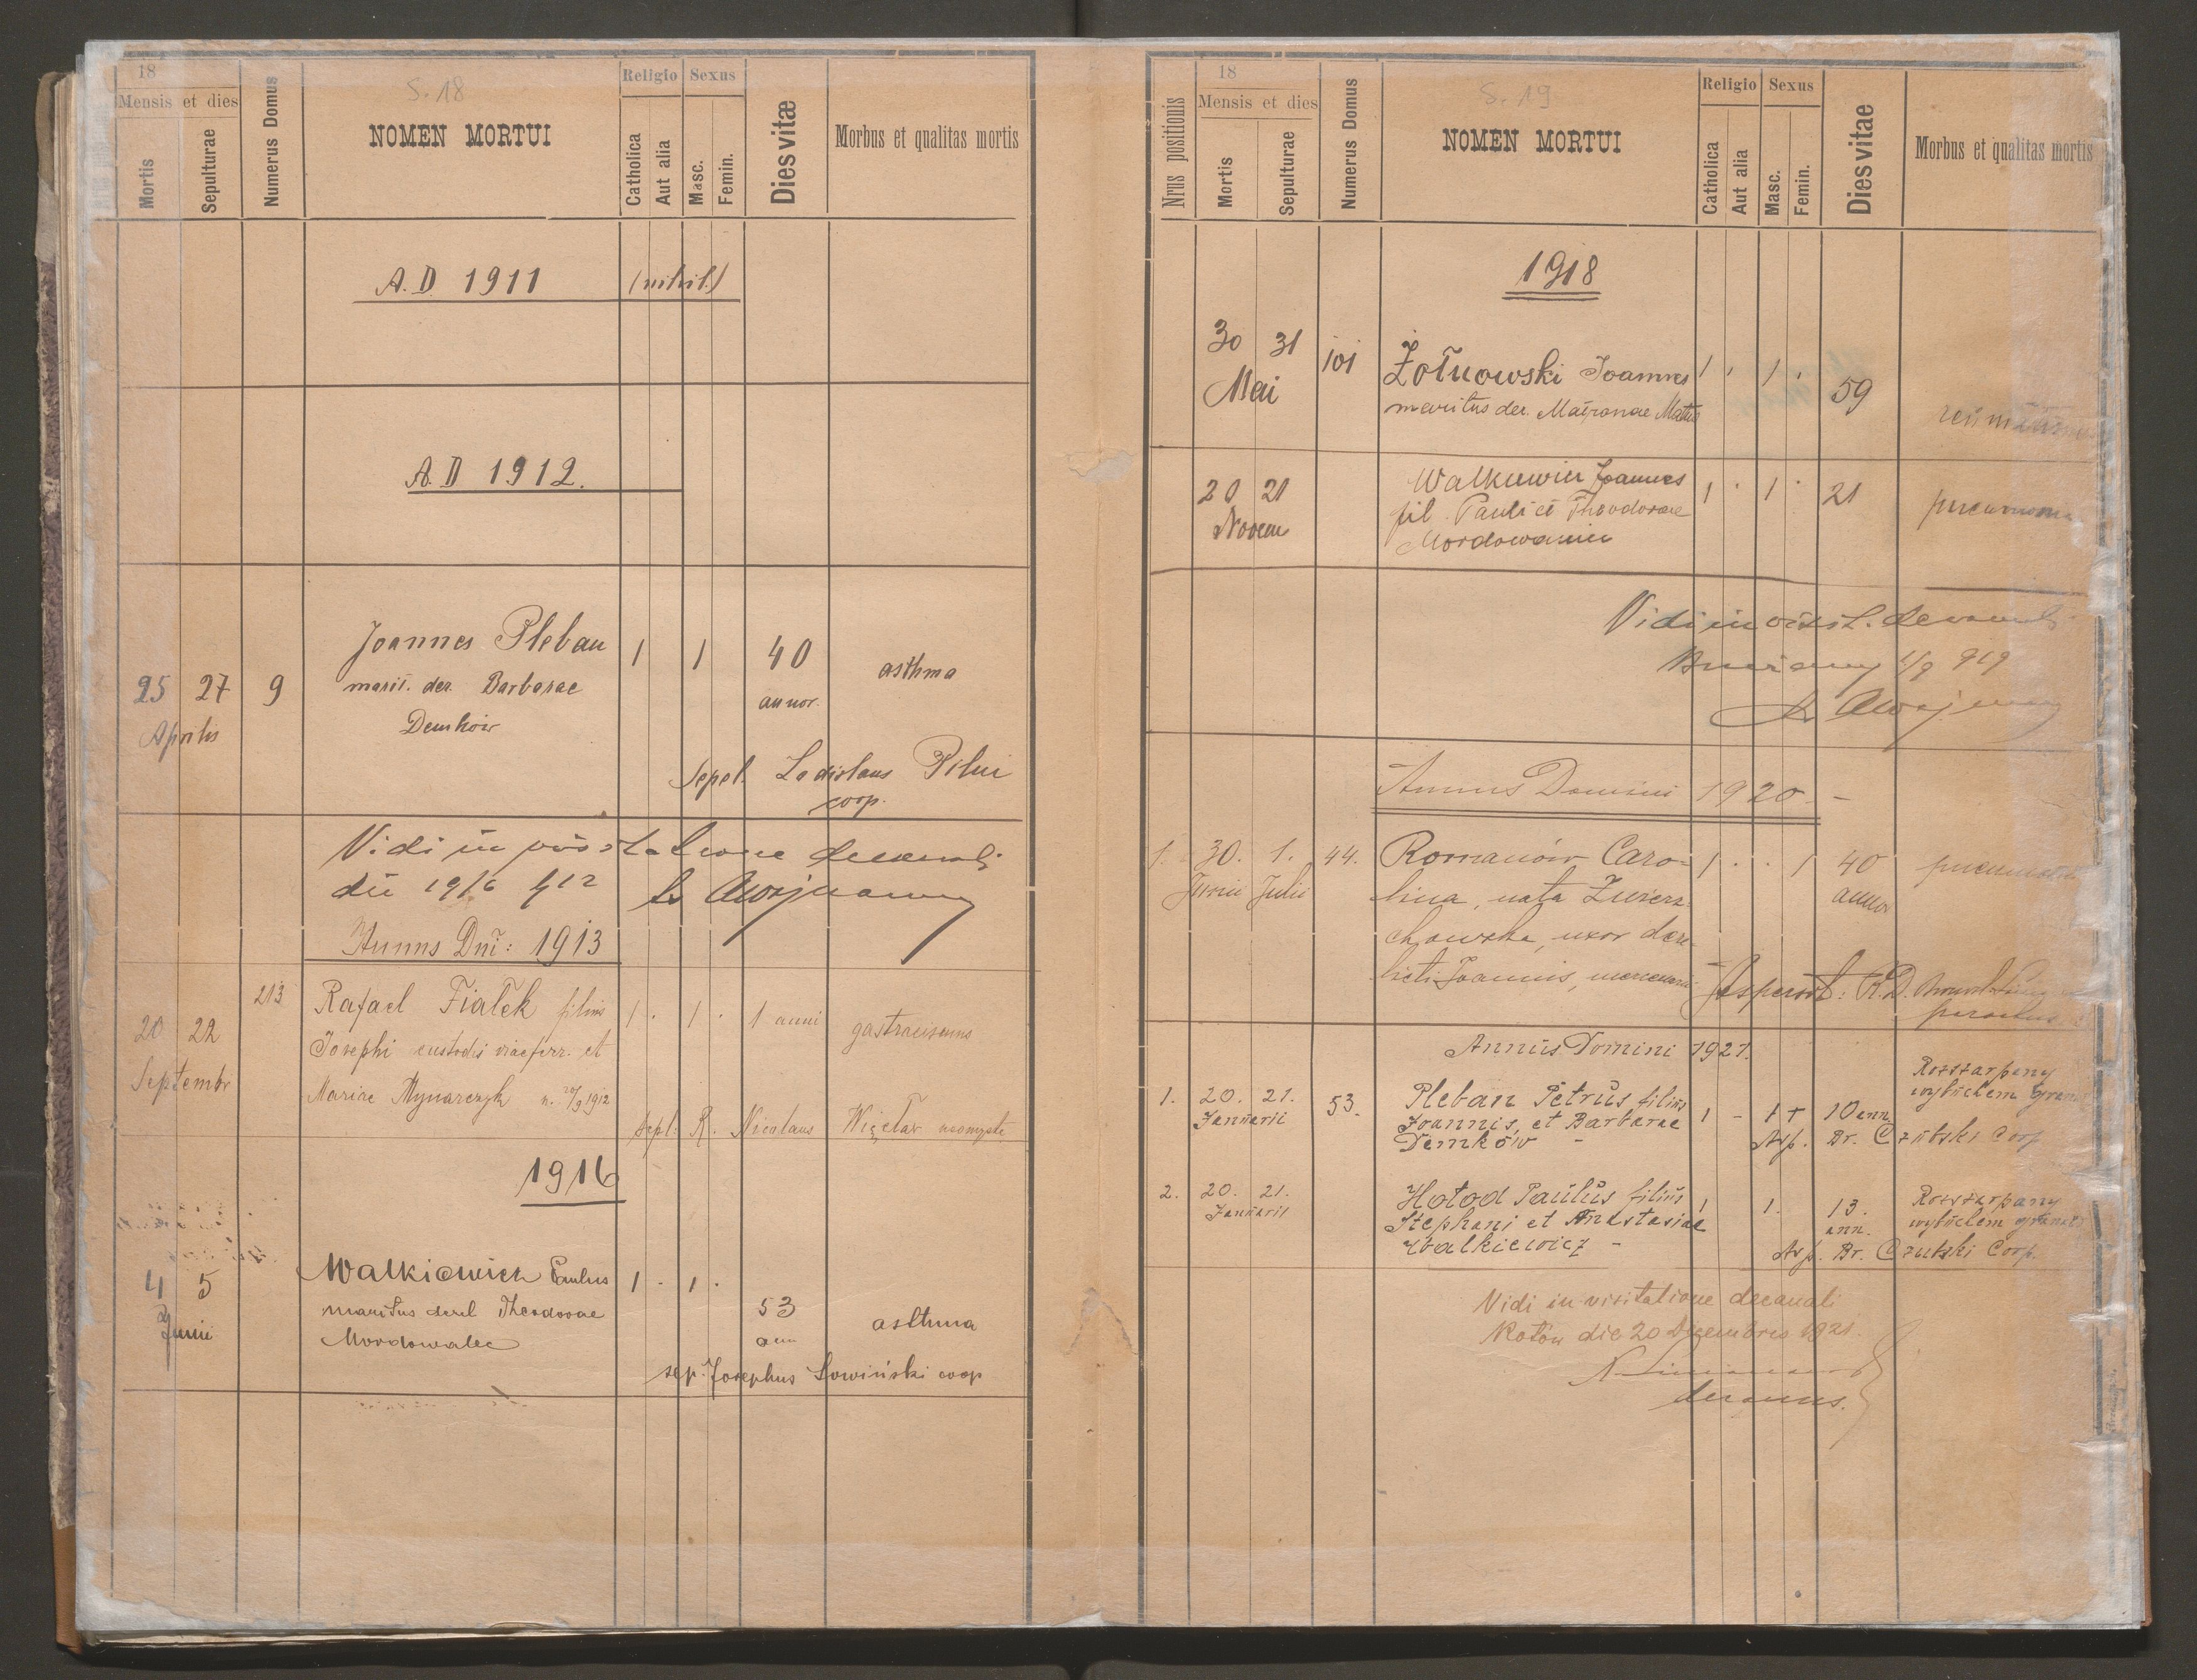 18
Mensis et dies
Mortis
Sepulturae
Numerus Domus
S. 18
NOMEN MORTUI
Religio
Catholica
Aut alia
Sexus
Masc.
Femin.
Dies vitæ
Morbus et qualitas mortis
A.D. 1911 (nihil.)
A.D 1912.
25 27 9
Aprilis
Joannes Pleban 1 1 40 asthma
marit. der. Barbarae annor.
Demków
Sepel. Ladislaus Pilni
coop.
Vidi in decanali
die 19/6 912
Annus Dni: 1913
20 22 213
Septembr
Rafael Fiałek filius 1 . 1 . 1 anni
Josephi custodis viae ferr. et
Mariae Młynarczyk n. 20/9 1912
sepl: R. Nicolaus
1916
4 5
Junii
Walkiewicz Paulus 1 . 1 . 53 asthma
maritus derel Theodorae ann
Mordowalec
sep. Josephus Łowiński coop
Nrus positionis
18
Mensis et dies
Mortis
Sepulturae
Numerus Domus
S. 19
NOMEN MORTUI
Religio
Catholica
Aut alia
Sexus
Masc.
Femin.
Dies vitae
Morbus et qualitas mortis
1918
30 31 101
Mai
Żołnowski Joannes 1 . 1 . 59
maritus der. Matronae
20 21
Novem
Joannes 1 . 1 . 21 pneumonia
fil. Pauli et Theodorae
Vidi in
919
Annus Domini 1920 -
1. 30. 1. 44.
Junii Julii
Romanów Caro- 1 . . 1 40
lina, nata annor
uxor dere-
licti Joannis,
R.D.
Annus Domini 1921.
1. 20. 21. 53.
Januarii
Pleban Petrus filius 1 - 1 + 10 ann Rozszarpany
Joannis, et Barbarae wybuchem
Demków - Asp. Br. Czubski Corp
2. 20. 21.
Januarii
Hołod Paulus filius 1 1. 13. Rozszarpany
Stephani et Anastasiae ann. wybuchem
Walkiewicz - Asp. Br. Czubski Corp.
Vidi in visitatione decanali
die 20 Decembris 1921.
decanus.